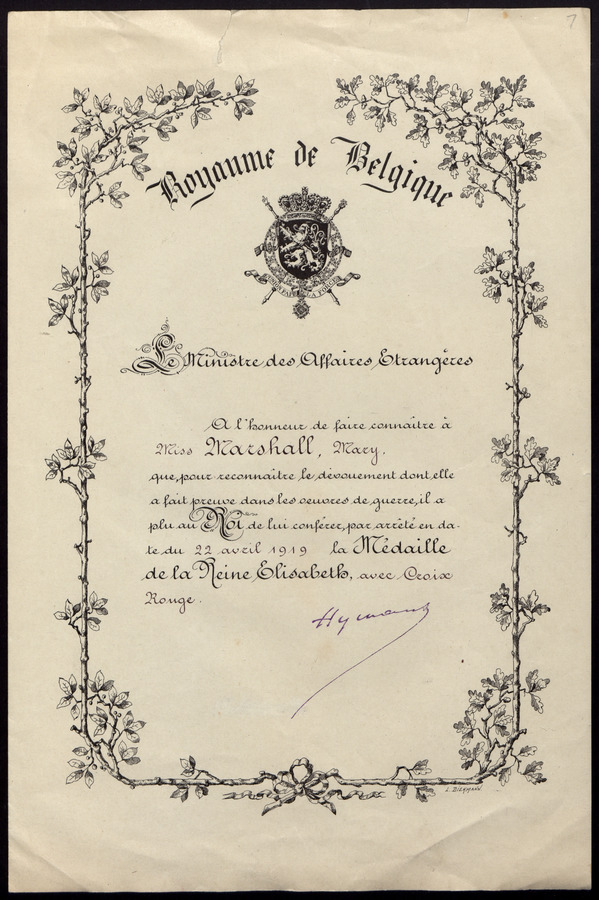 7
Royaume de Belgique
Le Ministre des Affaires Etrangères
A l'honneur de faire connaître à
Miss Marshall, Mary,
que, pour reconnaître le dévouement dont elle
a fait preuve dans les oeuvres de guerre, il a
plu au Roi de lui conférer, par arrêté en da-
te du 22 avril 1919 la Médaille
de la Reine Elisabeth, avec Croix
Rouge.
Hymans